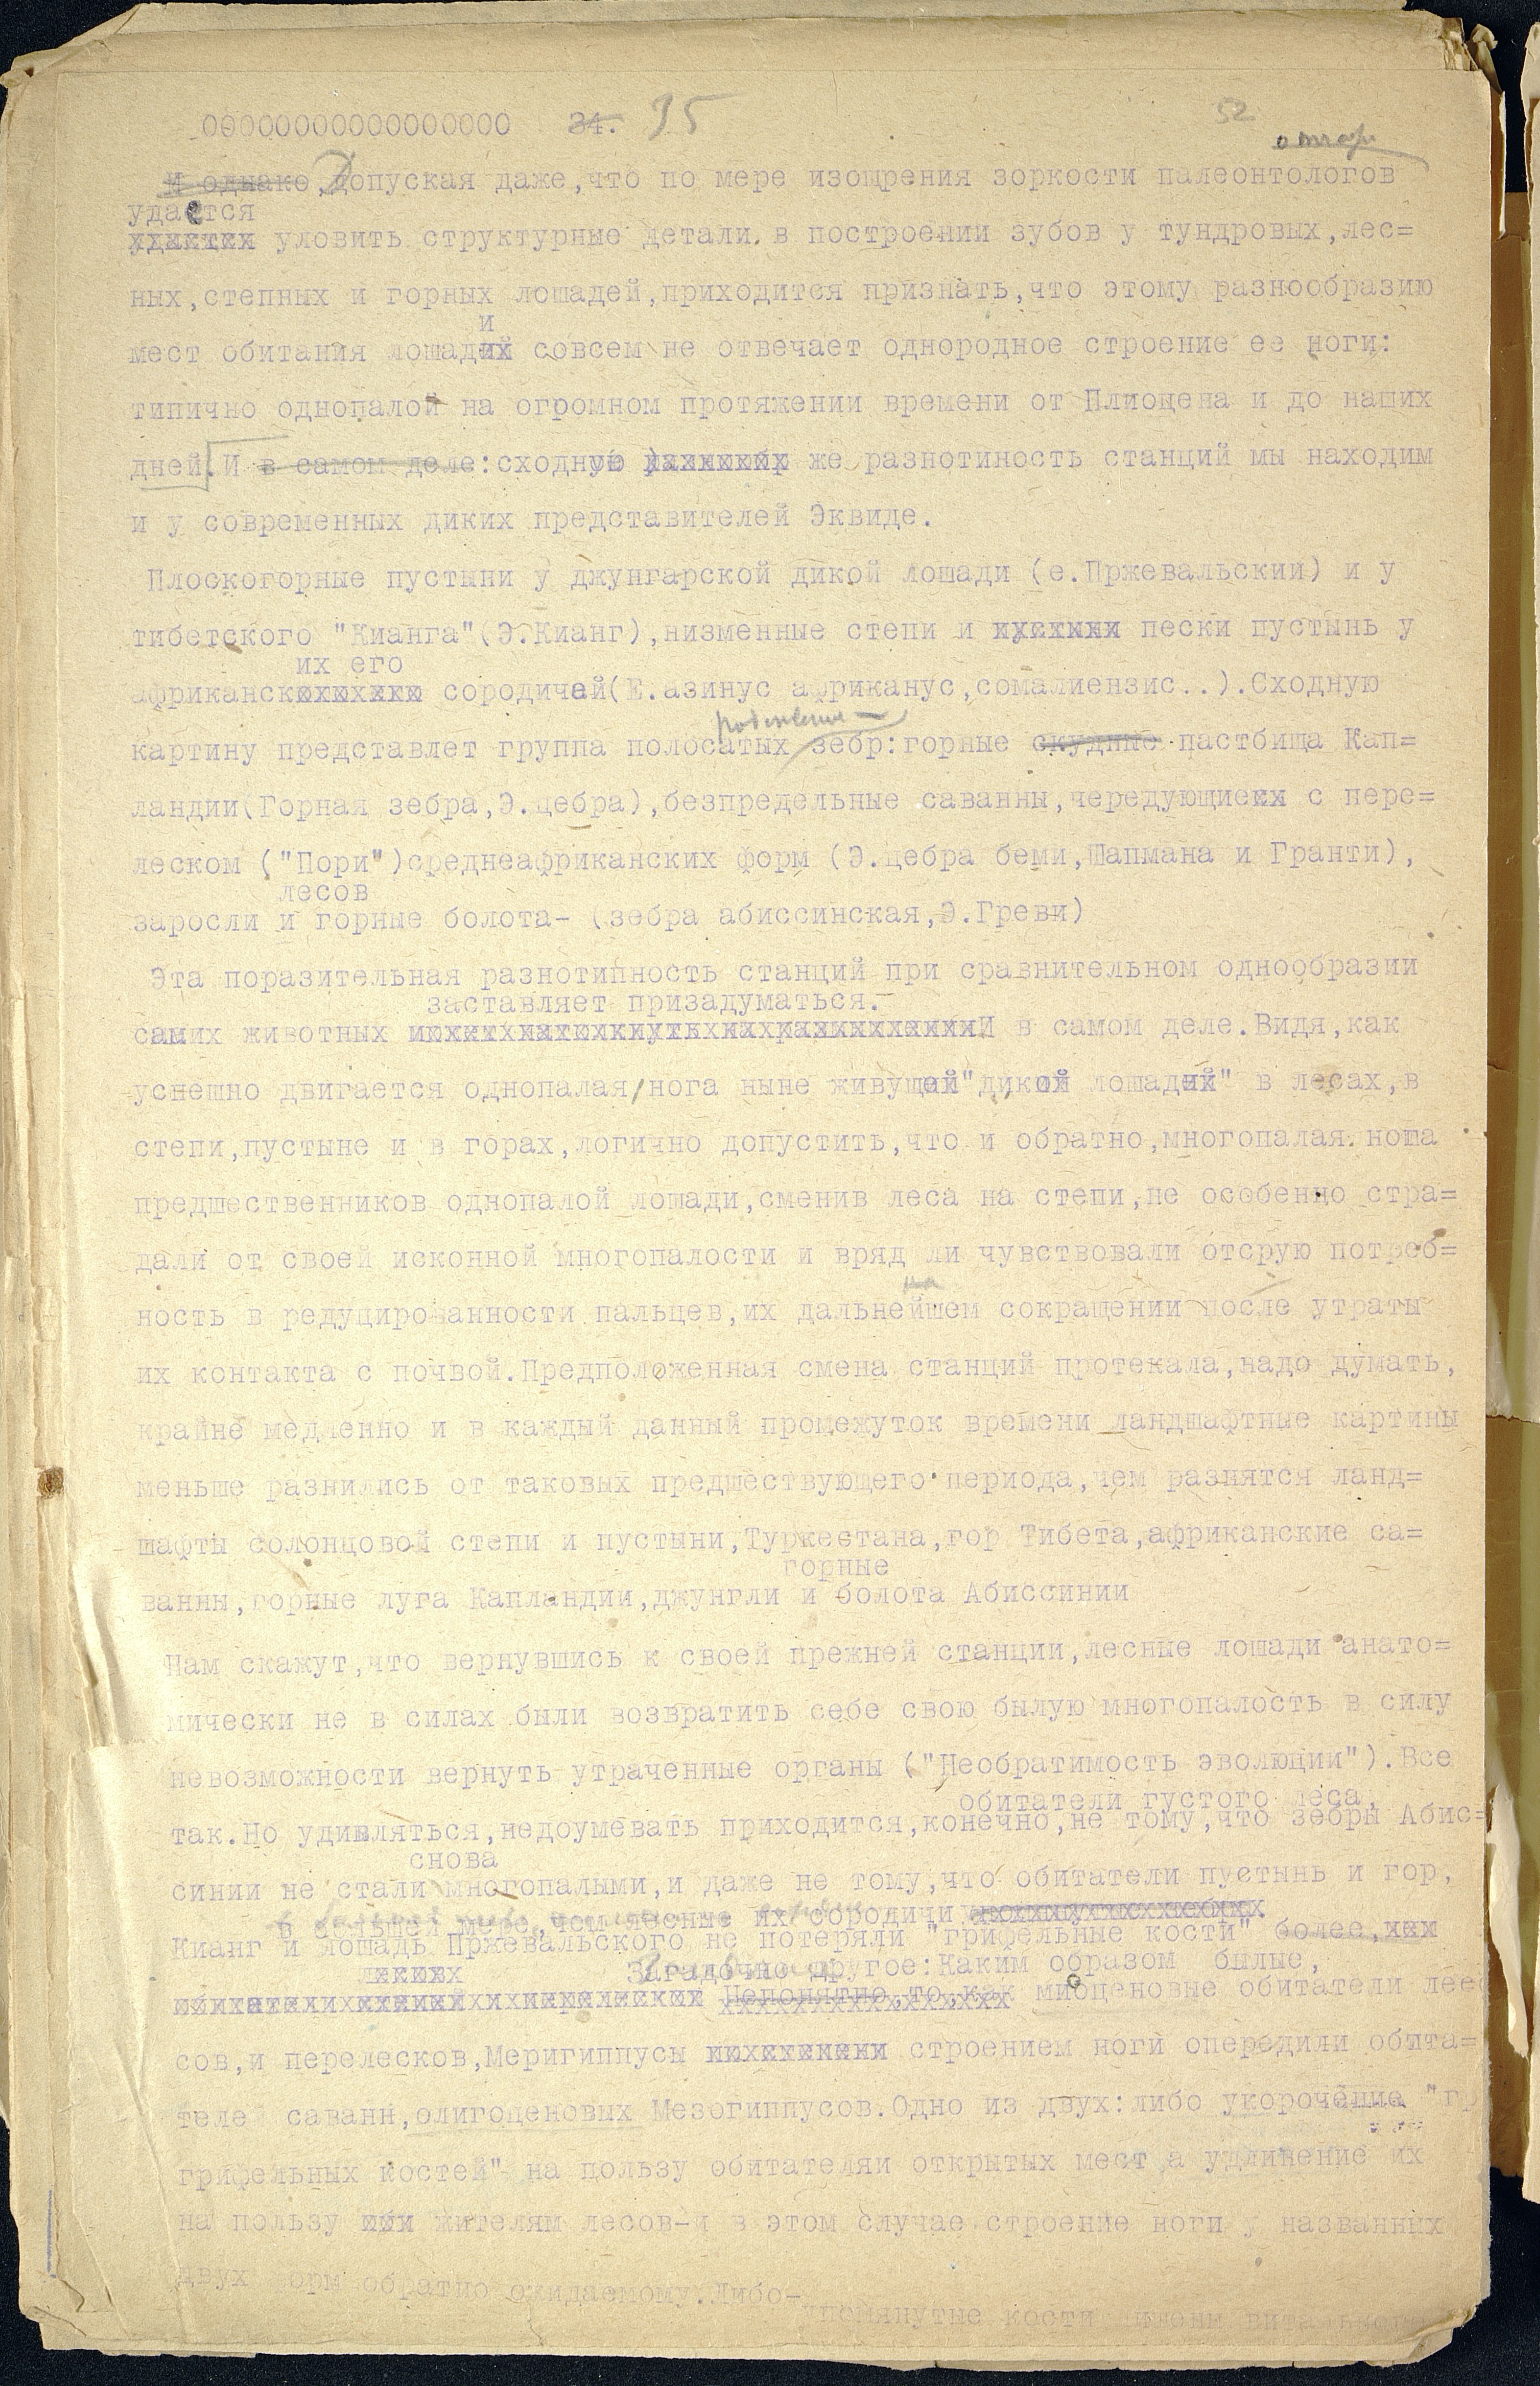 00000000000000000 34. 35
52
И однако, Допуская даже,что по мере изощрения зоркости палеонтологов
удается
уловить структурные детали в построении зубов у тундровых,лес=
ных,степных и горных лошадей,приходится признать,что этому разнообразию
и
мест обитания лошадий совсем не отвечает однородное строение ее ноги:
типично однопалой на огромном протяжении времени от Плиоцена и до наших
дней.И в самом деле:сходную же разнотиность станций мы находим
и у современных диких представителей Эквиде.
Плоскогорные пустыни у джунгарской дикой лошади (е.Пржевальский) и у
тибетского "Кианга"(Э.Кианг),низменные степи и пески пустынь у
их его
африканск сородичей(Е.азинус африканус,сомалиензис..).Сходную
картину представлет группа полосатых зебр:горные скудные пастбища Кап=
ландии(Горная зебра,Э.цебра),безпредельные саванны,чередующиеся с пере=
леском ("Пори")среднеафриканских форм (Э.цебра беми,Шапмана и Гранти),
лесов
заросли и горные болота- (зебра абиссинская,Э.Греви)
Эта поразительная разнотипность станций при сравнительном однообразии
заставляет призадуматься.
самих животных И в самом деле.Видя,как
успешно двигается однопалая нога ныне живущей"дикой лошадий" в лесах,в
степи,пустыне и в горах,логично допустить,что и обратно,многопалая ноша
предшественников однопалой лошади,сменив леса на степи,не особенно стра=
дали от своей исконной многопалости и вряд ли чувствовали отсрую потреб=
на
ность в редуцированности пальцев,их дальнейшем сокращении после утраты
их контакта с почвой.Предположенная смена станций протекала,надо думать,
крайне медленно и в каждый данный промежуток времени ландшафтные картины
меньше разнились от таковых предшествующего периода,чем разнятся ланд=
шафты солонцовой степи и пустыни,Туркестана,гор Тибета,африканские са=
горные
ванны,горные луга Капландии,джунгли и болота Абиссинии
Нам скажут,что вернувшись к своей прежней станции,лесные лошади анато=
мически не в силах были возвратить себе свою былую многопалость в силу
невозможности вернуть утраченные органы ("Необратимость эволюции").Все
обитатели густого леса,
так.Но удивляться,недоумевать приходится,конечно,не тому,что зебры Абис=
снова
синии не стали многопалыми,и даже не тому,что обитатели пустынь и гор,
в большей мере,чем лесные их сородичи
Кианг и лошадь Пржевальского не потеряли "грифельные кости" более,
Загадочно другое:Каким образом былые,
Непонятно,то,как миоценовые обитатели лес
сов,и перелесков,Меригиппусы строением ноги опередили обита=
теле саванн,олигоценовых Мезогиппусов.Одно из двух:либо укорочение "гр
грифельных костей" на пользу обитателяи открытых мест,а удлинение их
на пользу жителям лесов-и в этом случае строение ноги у названных
двух форм обратно ожидаемому.Либо-
упомянутые кости